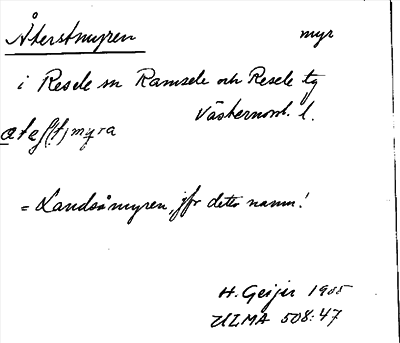 Återstmyren myr
i Resele sn Ramsele och Resele tg
Västernorrl. l.
= Landsåmyren, jfr detta namn!
H. Geijer 1905
ULMA 508:47